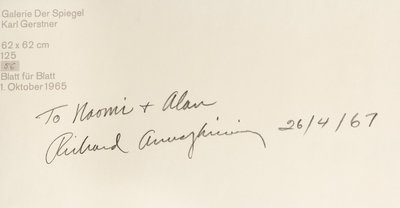 Galerie Der Spiegel
Karl Gerstner
62 x 62 cm
125
Blatt für Blatt
1. Oktober 1965
To Naomi + Alan
Richard
26/4/67